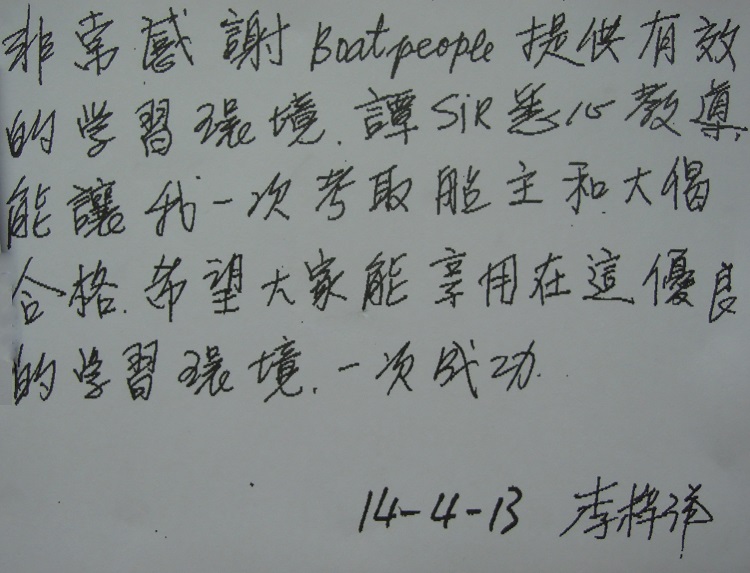 非常感謝 Boatpeople 提供有效
的学習環境. 譚 SIR 悉心教導,
能讓我一次考取船主和大偈
合格. 希望大家能享用在這優良
的学習環境. 一次成功.
14-4-13 李梓洋